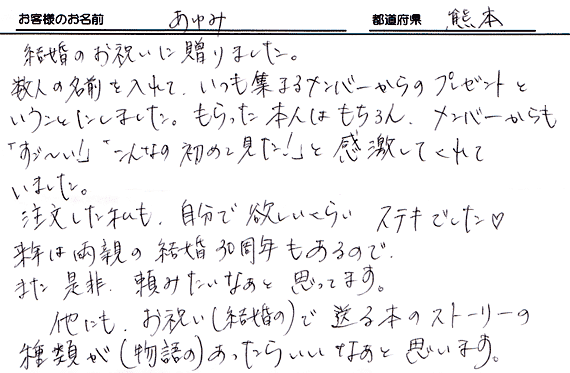 お客様のお名前 あゆみ 都道府県 熊本
結婚のお祝いに贈りました。
数人の名前を入れて、いつも集まるメンバーからのプレゼントと
いうことにしました。もらった本人はもちろん、メンバーからも
「すご〜い!」「こんなの初めて見た!」と感激してくれて
いました。
注文した私も、自分で欲しいくらいステキでした♡
来年は両親の結婚30周年もあるので、
また是非、頼みたいなぁと思ってます。
他にも、お祝い(結婚の)で送る本のストーリーの
種類が(物語の)あったらいいなぁと思います。